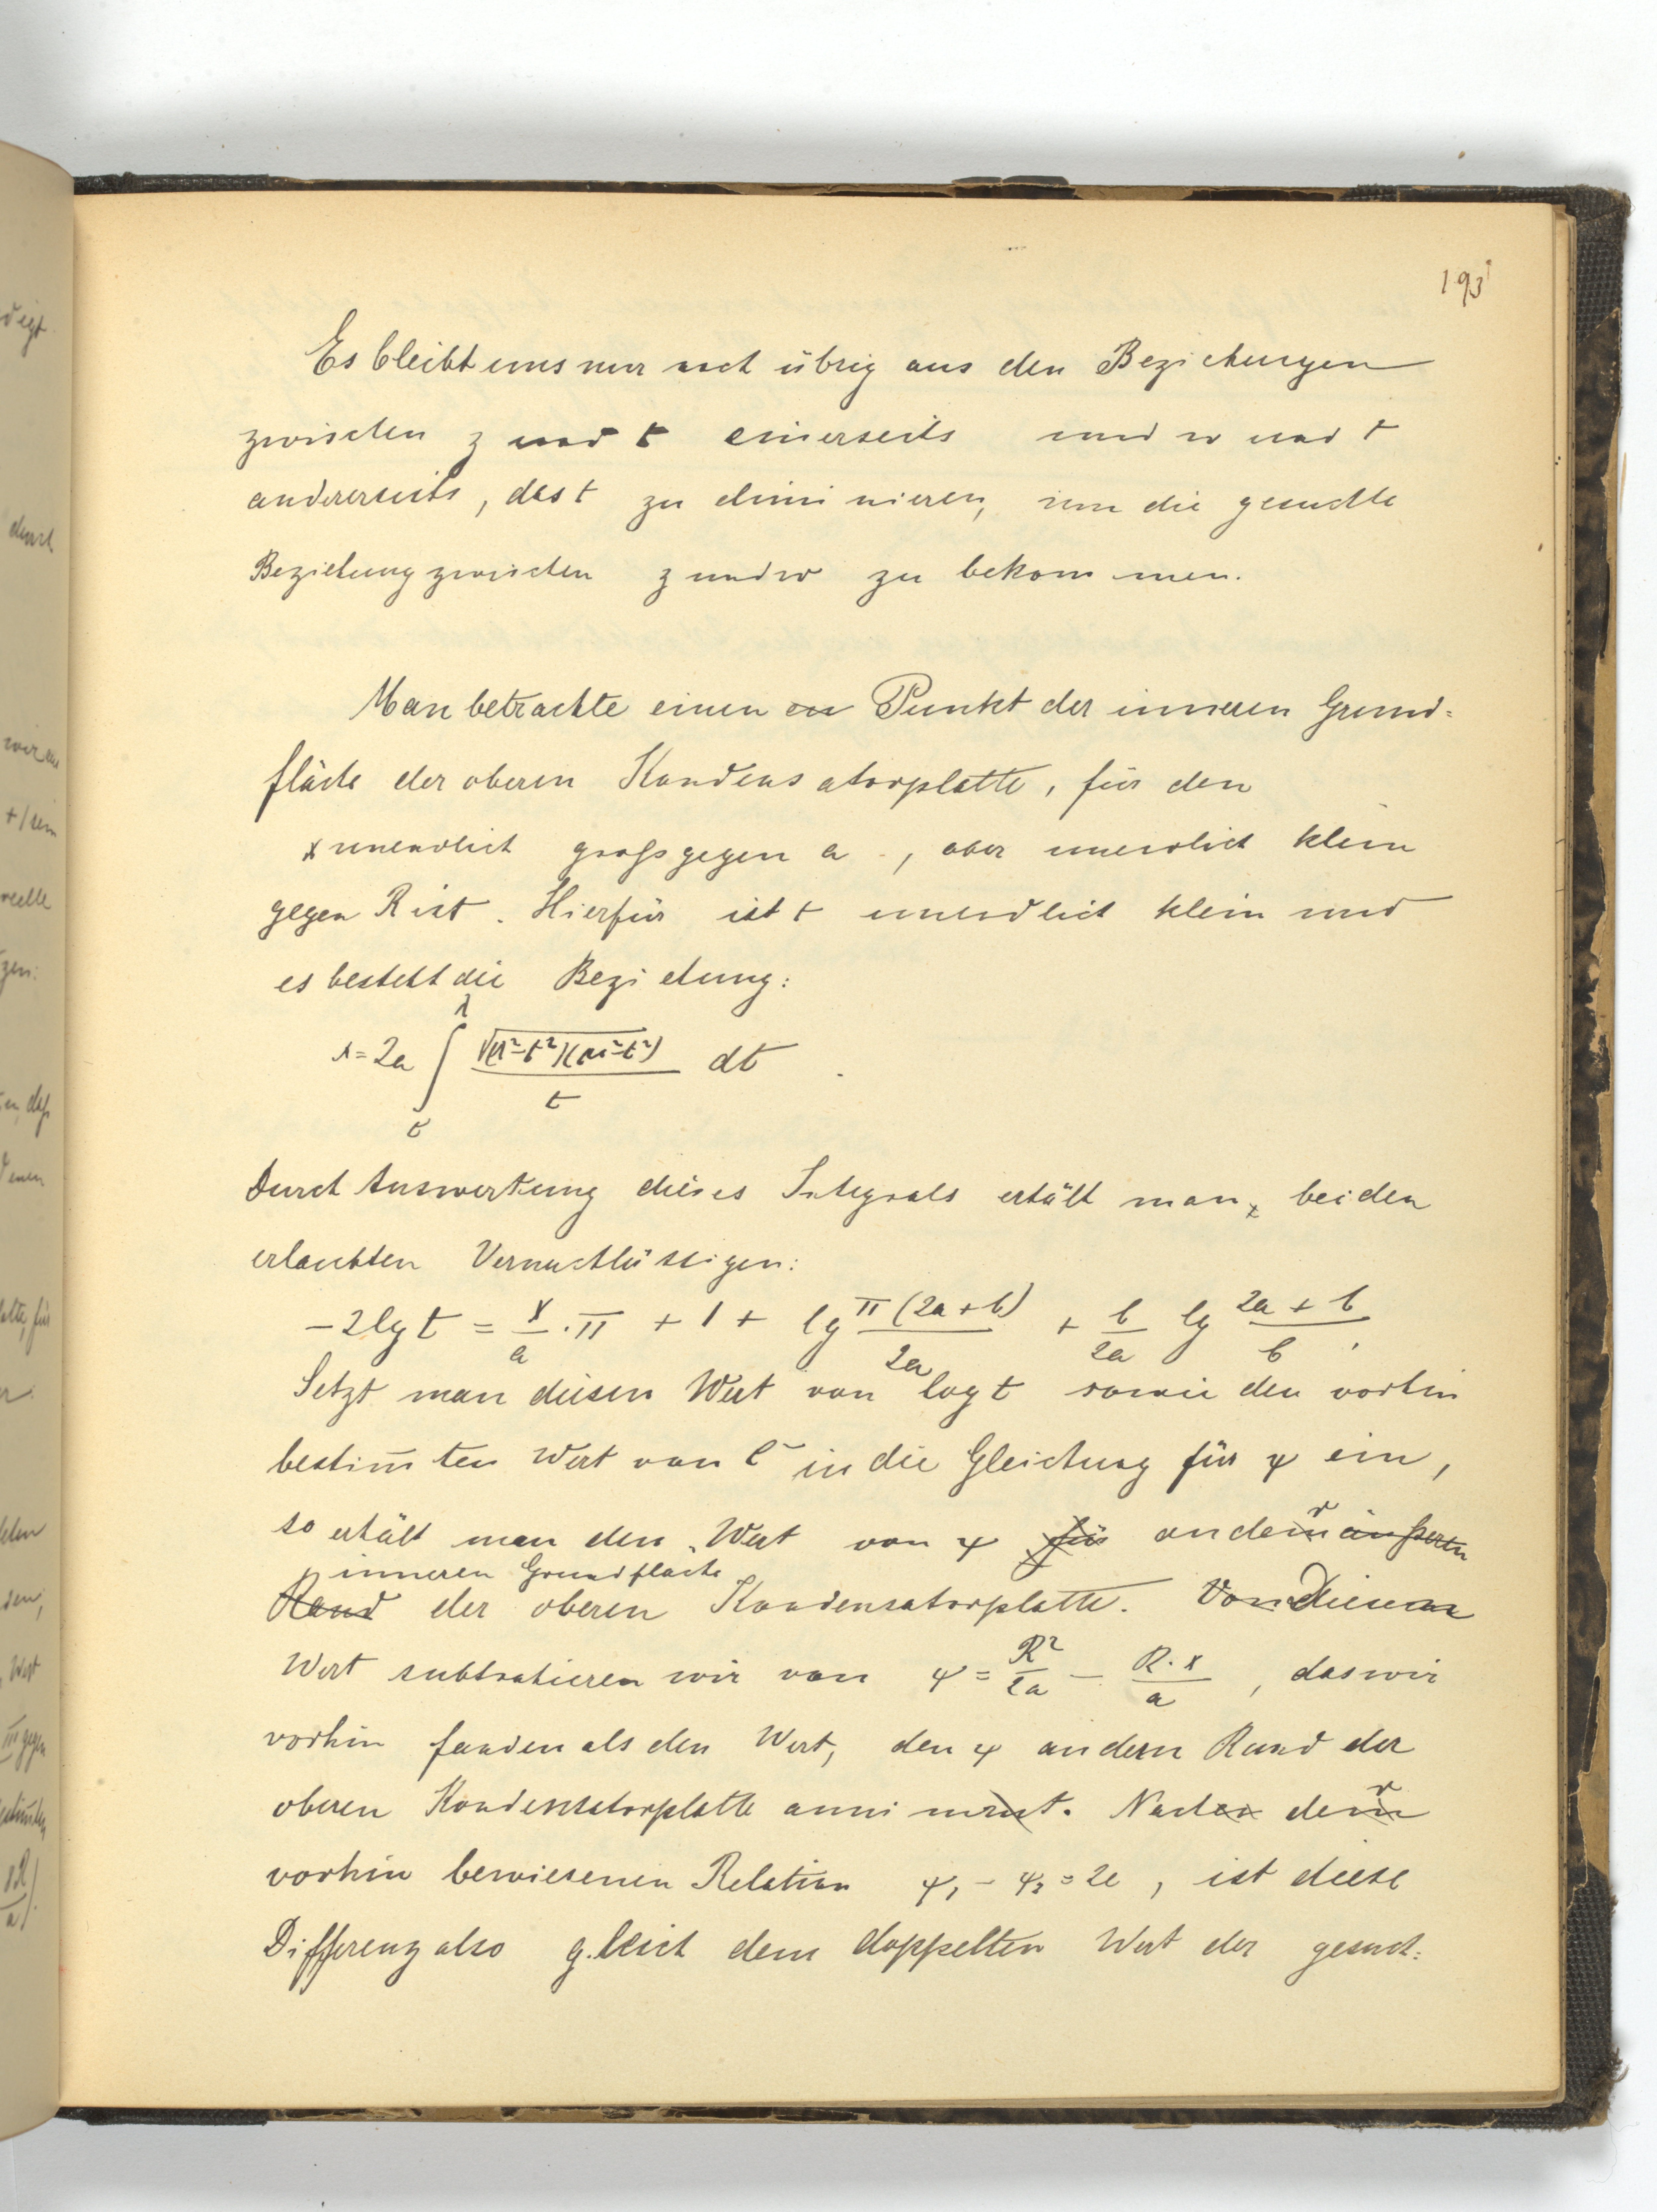 193
Es bleibt uns nur noch übrig aus den Beziehungen
zwischen z und t einerseits und w und t
andererseits, das t zu eliminieren, um die gesuchte
Beziehung zwischen z und w zu bekommen.
Man betrachte einen Punkt der inneren Grund=
fläche der oberen Kondensatorplatte, für den
x unendlich groß gegen a, aber unendlich klein
gegen R ist. Hierfür ist t unendlich klein und
es besteht die Beziehung:
x = 2a ∫ √(λ²-t²)(μ²-t²) / t dt
Durch Auswertung dieses Integrals erhält man, bei den
erlaubten Vernachlässigen:
-2lg t = x/a · π + 1 + lg π(2a+b)/2a + b/2a lg 2a+b/b,
Setzt man diesen Wert von log t sowie den vorhin
bestim̄ten Wert von C in die Gleichung für ψ ein,
so erhält man den Wert von ψ für an der äußeren
inneren Grundfläche
Rand der oberen Kondensatorplatte. Von Diesen
Wert subtrahieren wir von ψ = R²/2a - R·x/a, das wir
vorhin fanden als den Wert, den ψ an dern Rand der
oberen Kondensatorplatte annimmt. Nach der
vorhin bewiesenen Relation ψ₁ - ψ₂ = 2e, ist diese
Differenz also gleich dem doppelten Wert der gesuch=